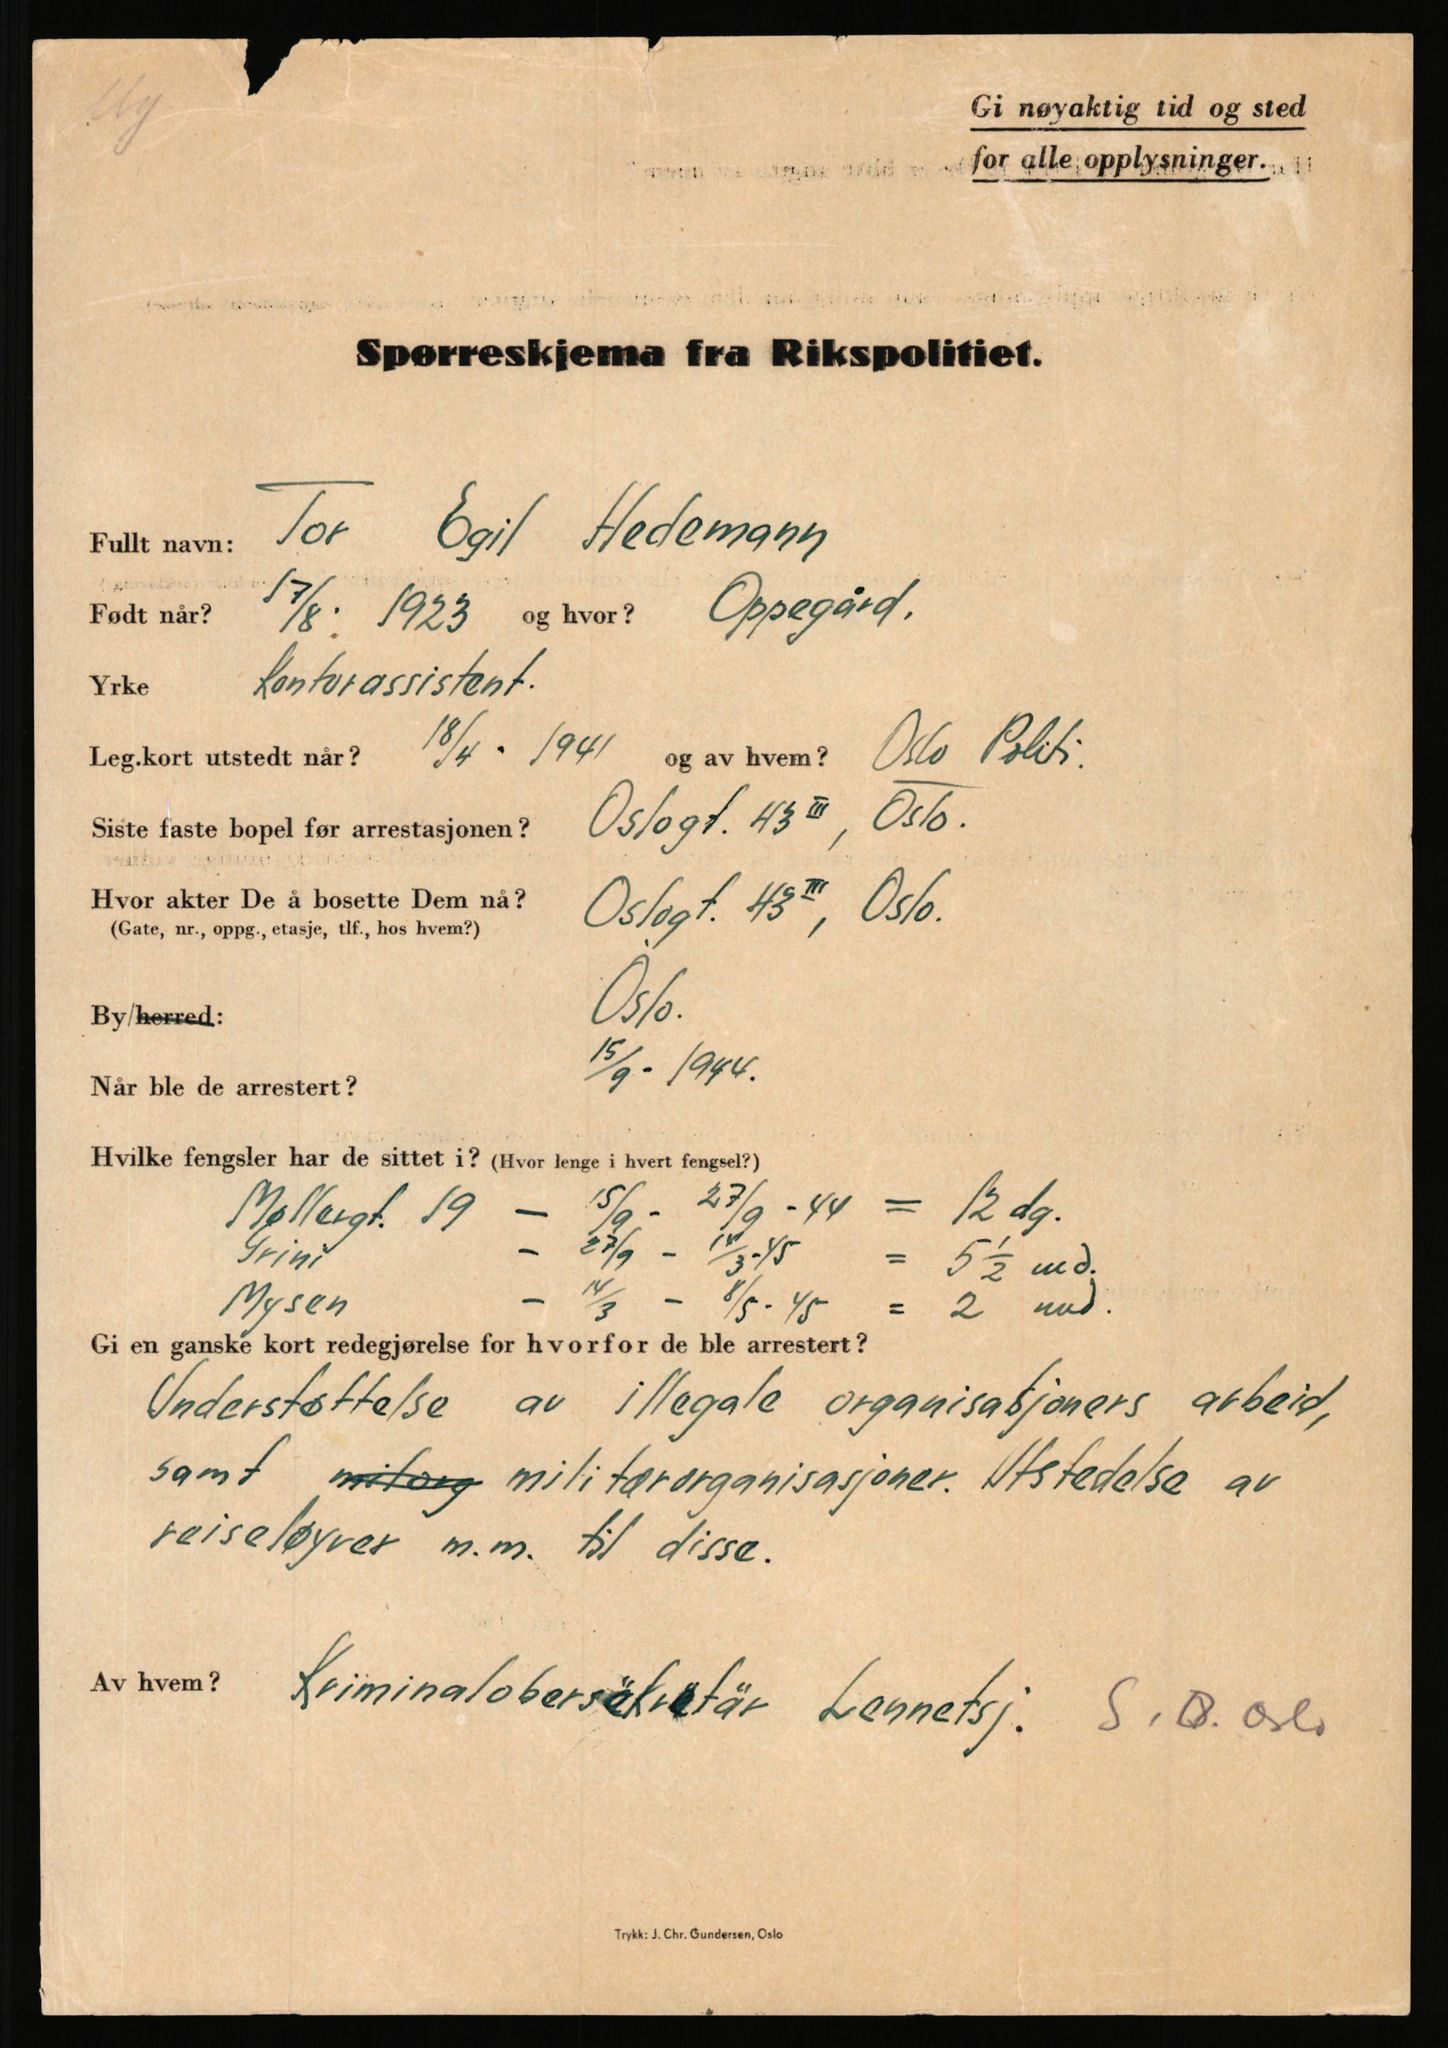 Gi nøyaktig tid og sted
for alle opplysninger.
Spørreskjema fra Rikspolitiet.
Fullt navn: Tor Egil Hedemann
Født når? 17/8. 1923 og hvor? Oppegård.
Yrke Kontorassistent.
Leg.kort utstedt når? 18/4. 1941 og av hvem? Oslo Politi.
Siste faste bopel før arrestasjonen? Oslogt. 43 III, Oslo.
Hvor akter De å bosette Dem nå? Oslogt. 43 III, Oslo.
(Gate, nr., oppg., etasje, tlf., hos hvem?)
By/herred: Oslo.
Når ble de arrestert? 15/9. 1944.
Hvilke fengsler har de sittet i? (Hvor lenge i hvert fengsel?)
Møllergt. 19 — 15/9 - 27/9 - 44 = 12 dg.
Grini - 27/9 - 14/3-45 = 5 1/2 md.
Mysen - 14/3 - 8/5-45 = 2 md.
Gi en ganske kort redegjørelse for hvorfor de ble arrestert?
Understøttelse av illegale organisasjoners arbeid,
samt milorg militærorganisasjoner. Utstedelse av
reiseløyver m.m. til disse.
Av hvem? Kriminalobersekretär Lennetsj. S. D. Oslo
Trykk: J. Chr. Gundersen, Oslo